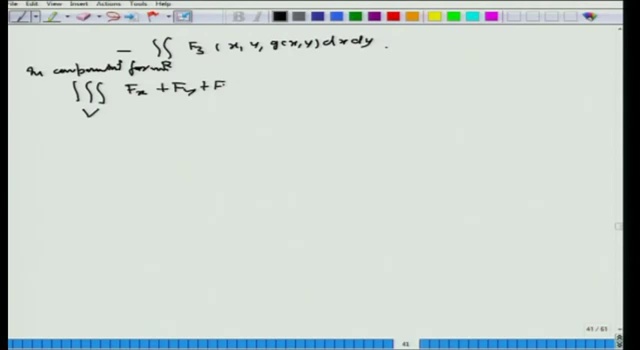 File Edit View Insert Actions Tools Help
− ∬_R F₃ (x, y, g(x,y) dx dy .
In component form
∭_V F_x + F_y + F
41 / 61
41